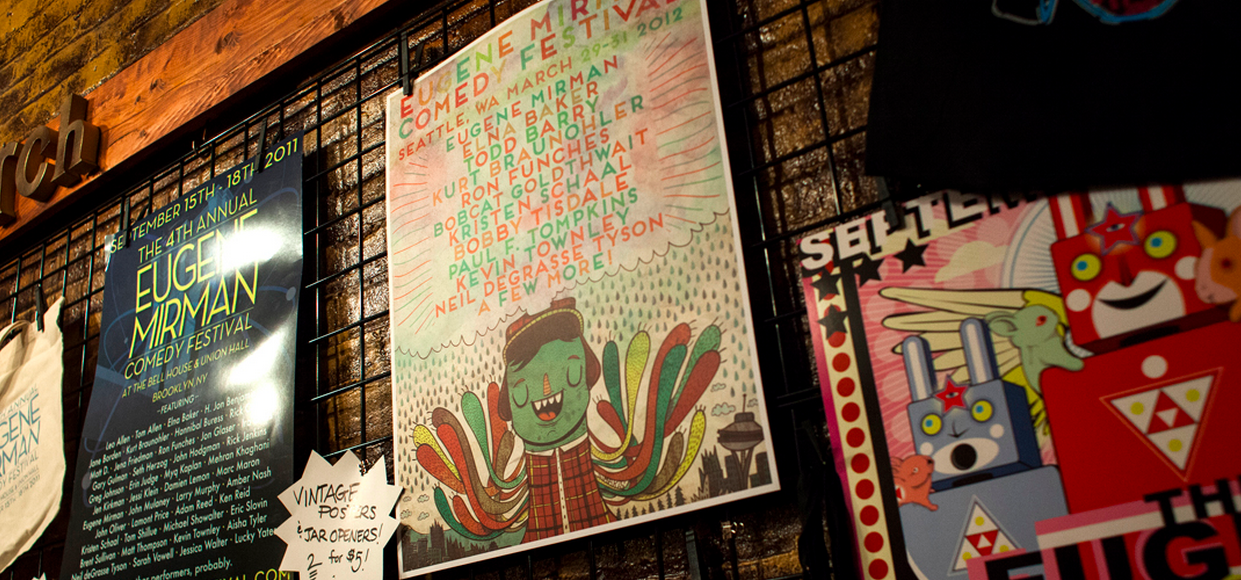 rch
SEPTEMBER 15TH - 18TH 2011
THE 4TH ANNUAL
EUGENE
MIRMAN
COMEDY FESTIVAL
AT THE BELL HOUSE & UNION HALL
BROOKLYN NY
-FEATURING-
Leo Allen • Tom Allen • Elna Baker • H. Jon Benjamin
Jane Borden • Kurt Braunohler • Hannibal Buress • Rick
Matt D. • Jena Friedman • Ron Funches • Jon Glaser
Gary Gulman • Seth Herzog • John Hodgman • Rick Jenkins
Greg Johnson • Erin Judge • Myq Kaplan • Mehran Khaghani
Jen Kirkman • Jessi Klein • Damien Lemon • Marc Maron
Eugene Mirman • John Mulaney • Larry Murphy • Amber Nash
John Oliver • Lamont Price • Adam Reed • Ken Reid
Kristen Schaal • Tom Shillue • Michael Showalter • Eric Slovin
Brent Sullivan • Matt Thompson • Kevin Townley • Aisha Tyler
Neil deGrasse Tyson • Sarah Vowell • Jessica Walter • Lucky Yates
other performers, probably.
VAL.COM
EUGENE MIRMAN
COMEDY FESTIVAL
SEATTLE, WA MARCH 29-31 2012
EUGENE MIRMAN
ELNA BAKER
TODD BARRY
KURT BRAUNOHLER
RON FUNCHES
BOBCAT GOLDTHWAIT
KRISTEN SCHAAL
BOBBY TISDALE
PAUL F. TOMPKINS
KEVIN TOWNLEY
NEIL DEGRASSE TYSON
A FEW MORE!
VINTAGE
POSTERS
& JAR OPENERS!
2 for $5!
SEPTEM
TH
EUG